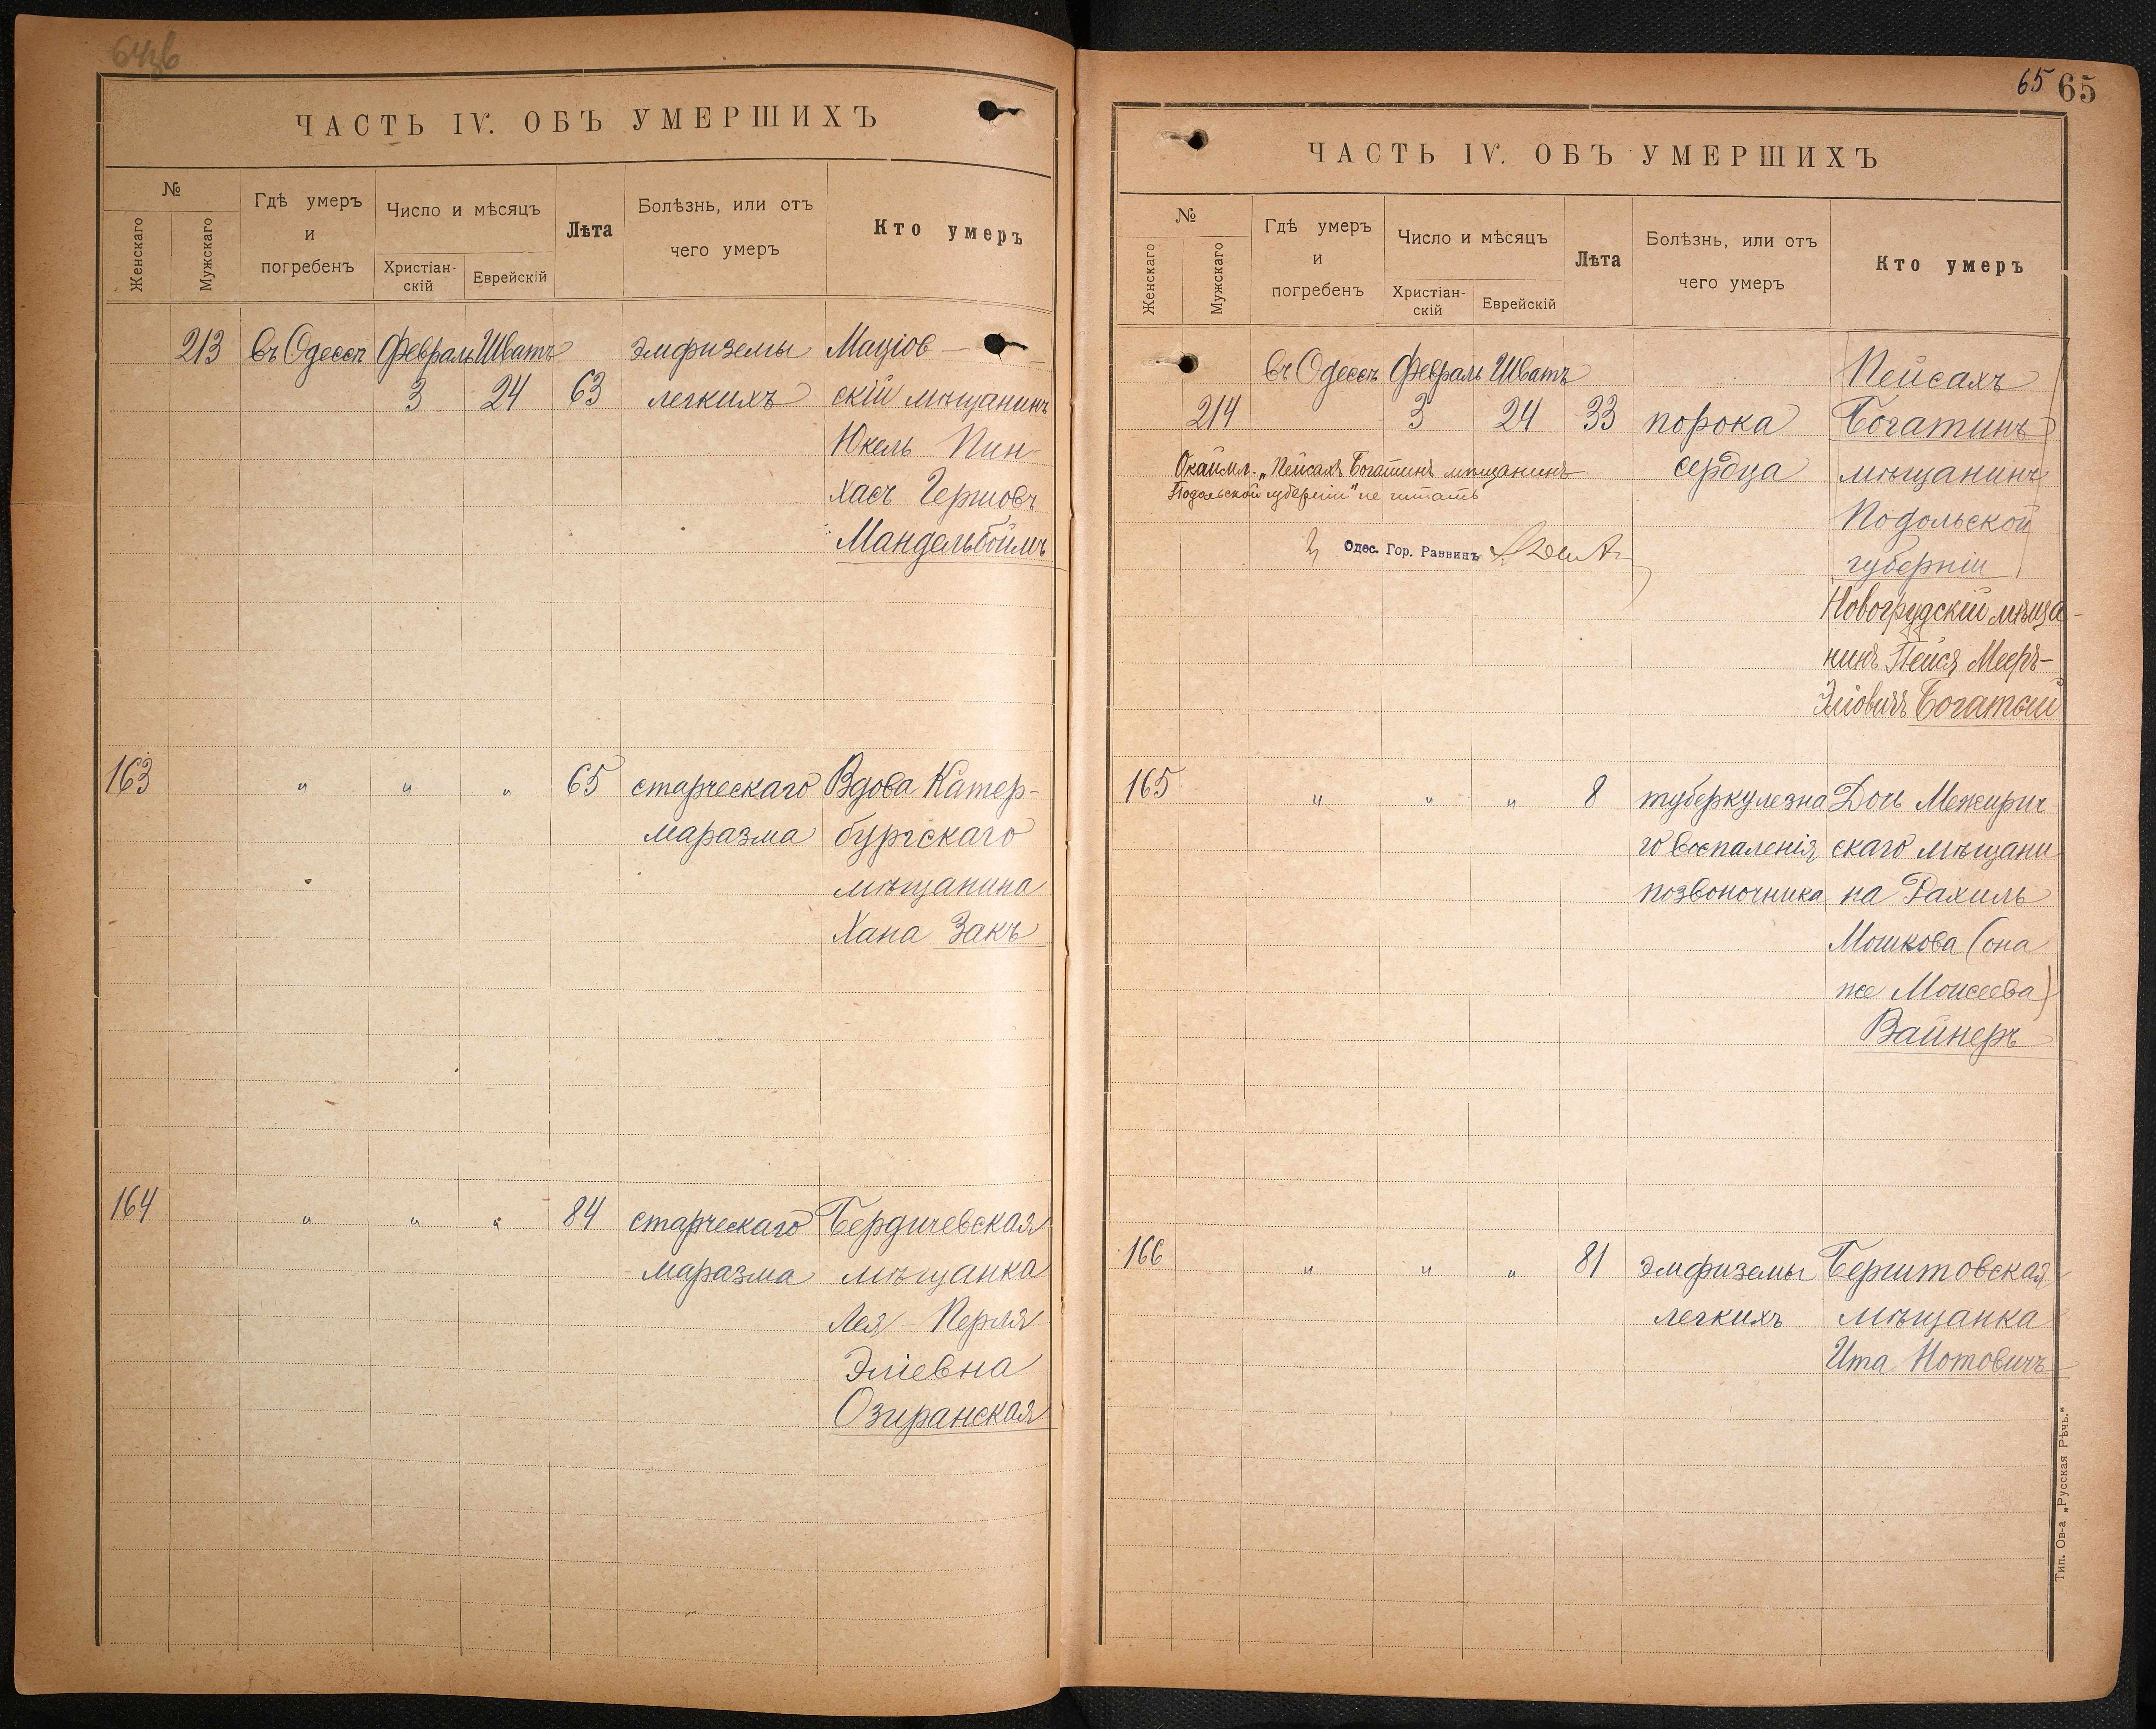 ЧАСТЬ IV. ОБЪ УМЕРШИХЪ
№
Женскаго
Мужскаго
Гдѣ умеръ
и
погребенъ
Число и мѣсяцъ
Христіан-
скій
Еврейскій
Лѣта
Болѣзнь, или отъ
чего умеръ
Кто умеръ
213 въ Одессѣ Февраль Шватъ эмфиземы Маціов-
3 24 63 легкихъ скій мѣщанинъ
Юкель Пин-
хасъ Гершовъ
Мандельбоймъ
163 " " " 65 старческаго Вдова Катер-
маразма бургскаго
мѣщанина
Хана Закъ
164 " " " 84 старческаго Бердичевская
маразма мѣщанка
Лея-Перля
Эліевна
Озиранская
65 65
ЧАСТЬ IV. ОБЪ УМЕРШИХЪ
№
Женскаго
Мужскаго
Гдѣ умеръ
и
погребенъ
Число и мѣсяцъ
Христіан-
скій
Еврейскій
Лѣта
Болѣзнь, или отъ
чего умеръ
Кто умеръ
въ Одессѣ Февраль Шватъ Пейсахъ
214 3 24 33 порока Богатинъ
Окаймл. „Пейсахъ Богатинъ мѣщанинъ сердца мѣщанинъ
Подольской губерніи" не читать
Подольской
Одес. Гор. Раввинъ
губерніи
Новогрудскій мѣща-
нинъ Пейся Мееръ-
Эліовичъ Богатый
165 " " " 8 туберкулезна Дочь Межирич
го воспаленія скаго мѣщани
позвоночника на Рахиль
Мошкова (она
же Моисеева)
Вайнеръ
166 " " " 81 эмфиземы Берштовская
легкихъ мѣщанка
Ита Нотовичъ
Тип. Ов-а „Русская Рѣчь."